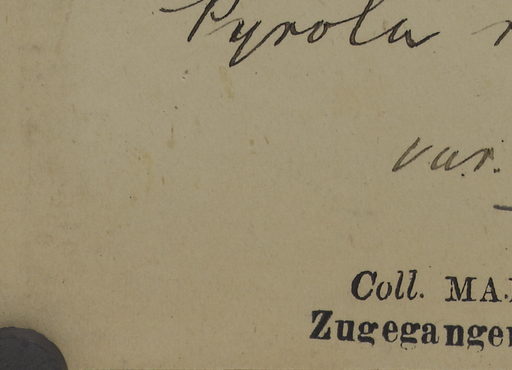 Pyrola
var.
Coll. MA
Zugegangen